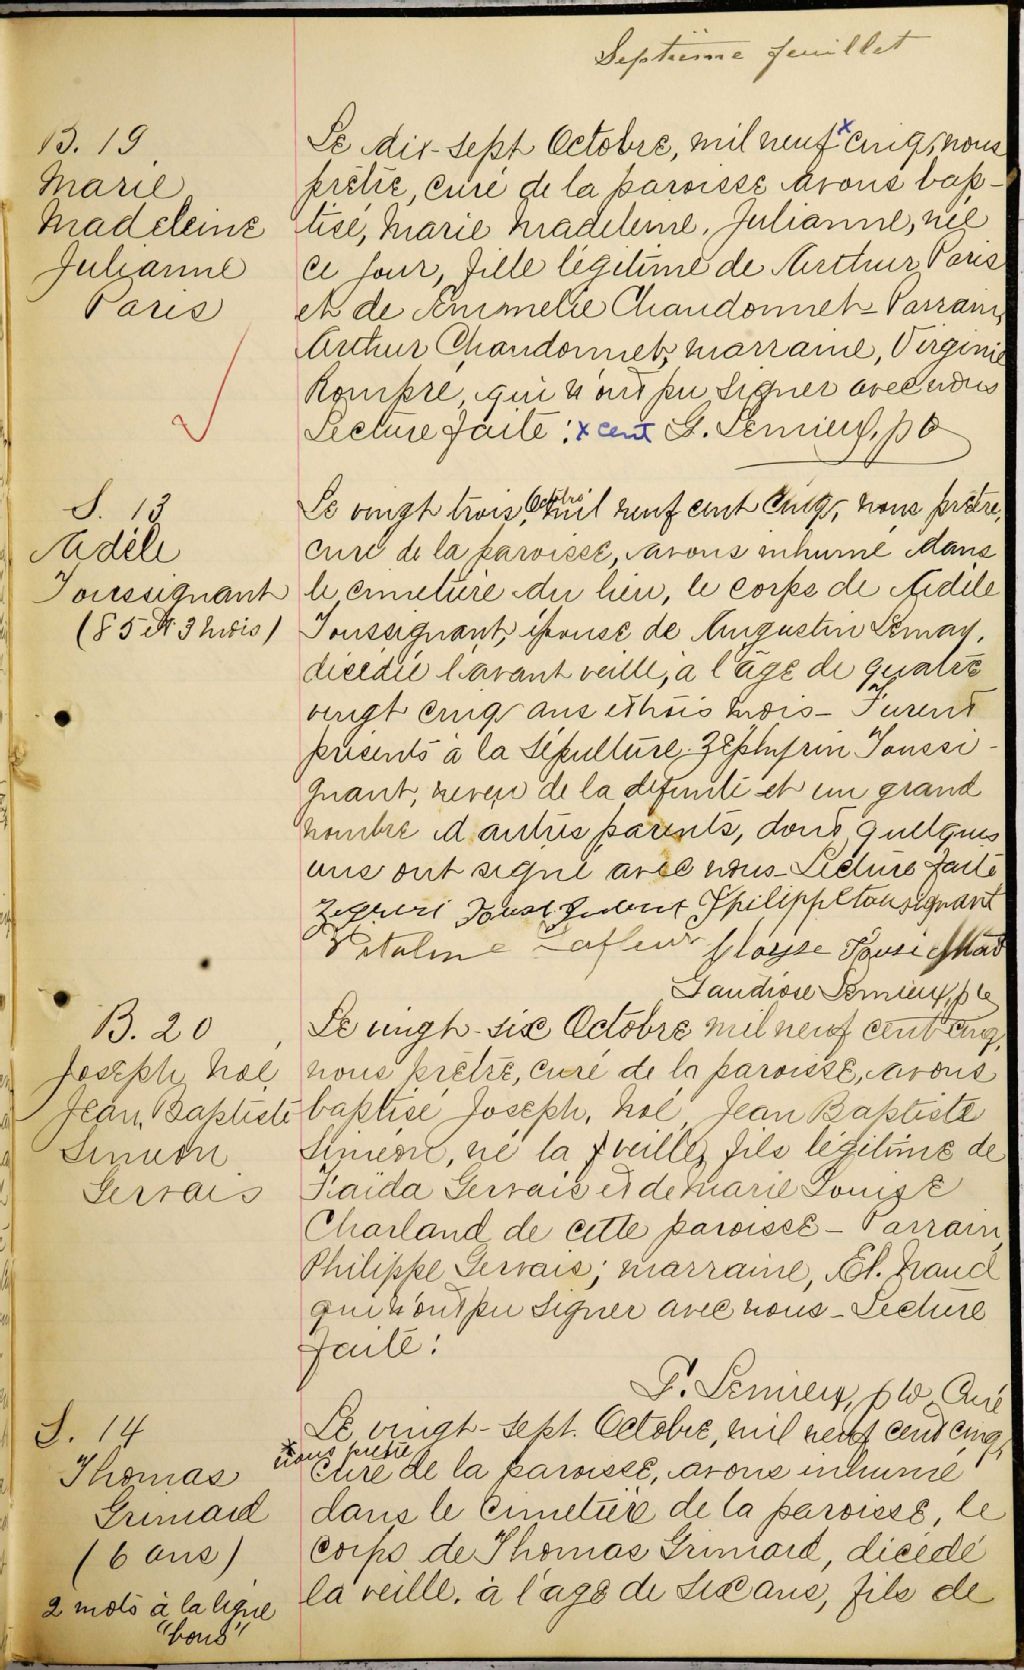 Septième feuillet
B. 19
Marie
Madeleine
Julianne
Paris
Le dix-sept Octobre, mil neuf x cinq, nous
prêtre, curé de la paroisse avons bap-
tisé, Marie Madeleine, Julianne, née
ce jour, fille légitime de Arthur Paris
et de Emmelie Chandonnet - Parrain,
Arthur Chandonnet, marraine, Virginie
Rompré, qui n'ont pu signer avec nous
Lecture faite : x cent G. Lemieux, ptre
S. 13
Adèle
Toussignant
(85 et 3 mois)
Le vingt trois, Octobre mil neuf cent cinq, nous prêtre,
curé de la paroisse, avons inhumé dans
le cimetière du lieu, le corps de Adèle
Toussignant, épouse de Augustin Lemay,
décédée l'avant veille, à l'âge de quatre
vingt cinq ans et trois mois - Furent
présents à la sépulture Zéphyrin Toussi-
gnant, neveu de la défunte et un grand
nombre d'autres parents, dont quelques
uns ont signé avec nous - Lecture faite
Philippe tousignant
Vitaline Lafleur Moyse
Gaudiose Lemieux, ptre
B. 20
Joseph Noé
Jean Baptiste
Siméon
Gervais
Le vingt-six Octobre mil neuf cent cinq,
nous prêtre, curé de la paroisse, avons
baptisé Joseph, Noé, Jean Baptiste
Siméon, né la veille, fils légitime de
Fraïda Gervais et de Marie Louise
Charland de cette paroisse - Parrain,
Philippe Gervais; marraine, El. Naud
qui n'ont pu signer avec nous - Lecture
faite :
G. Lemieux, ptre Curé
S. 14
Thomas
Grimard
(6 ans)
2 mots à la ligne
"bons"
Le vingt-sept Octobre, mil neuf cent cinq,
x nous prêtre
curé de la paroisse, avons inhumé
dans le cimetière de la paroisse, le
corps de Thomas Grimard, décédé
la veille, à l'age de six ans, fils de